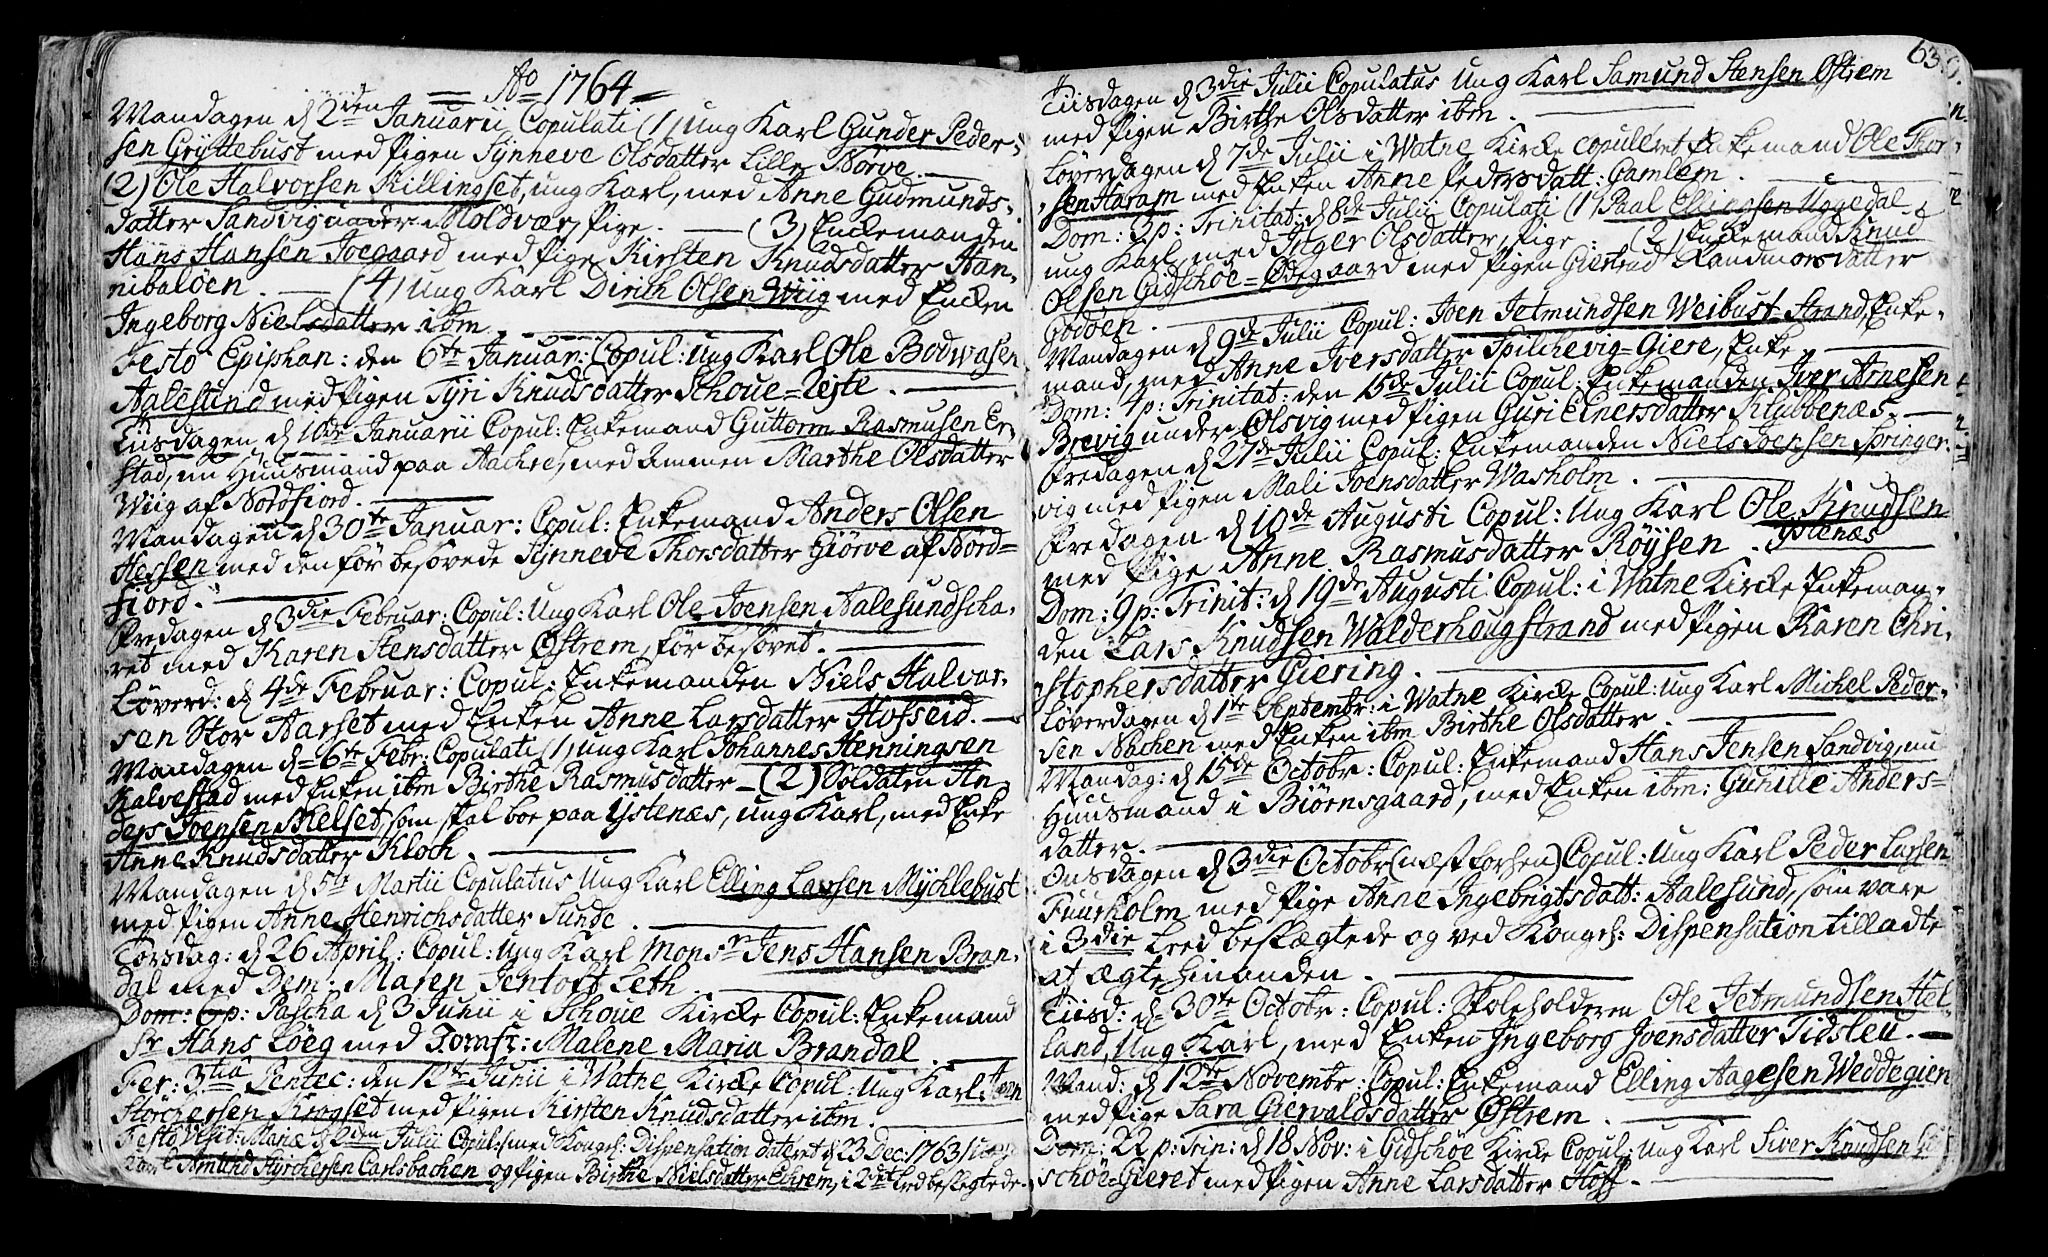 Ao 1764
Mandagen d 2den Januarii Copulati (1) ung Karl Gunder Peder-
sen Gryttebust med Pigen Synneve Olsdatter Lille Nørve.
(2) Ole Halvorsen Killingset, ung Karl, med Anne Gudmunds-
datter Sandvig under Moldvær, Pige. (3) Enckemanden
Hans Hansen Joegaard med Pige Kirsten Knudsdatter Han-
nibaløen. (4) Ung Karl Dirich Olsen Wiig med Encken
Ingeborg Nielsdatter ibm.
Festo Epiphan: den 6te Januar: Copul: ung Karl Ole Bodwasen
Aalesund med Pigen Tyri Knudsdatter Schoue=Tejte.
Tiisdagen d 10de Januarii Copul: Enkemand Guttorm Rasmusen Er-
stad, nu Huusmand paa Aachre, med Ammen Marthe Olsdatter
Wiig af Nordfiord.
Mandagen d 30te Januar: Copul: Enkemand Anders Olsen
Hessen med den før besovede Synneve Thorsdatter Giørve af Nord=
fiord.
Fredagen d 3die Februar: Copul: Ung Karl Ole Joensen Aalesundscha-
ret med Karen Stensdatter Østrem, før besovet.
Løverd: d 4de Februar: Copul: Enkemanden Niels Halvor-
sen Stor Aarset med Enken Anne Larsdatter Hofseid.
Mandagen d 6te Febr: Copulati (1) ung Karl Johannes Henningsen
Kalvestad med Enken ibm Birthe Rasmusdatter - (2) Soldaten An-
ders Joensen Nielset, som skal boe paa Ystenæs, ung Karl, med Enke
Anne Knudsdatter Kloch.
Mandagen d 5te Martii Copulatus Ung Karl Elling Larsen Mychlebust
med Pigen Anne Henrichsdatter Sunde.
Torsdag: d 26 April: Copul: Ung Karl Monsr Jens Hansen Bran-
dal med Dem: Maren Jentoft Leth.
Dom: 6 p: Pascha d 3 Junii i Schoue Kircke Copul: Enkemand
Sr Hans Løeg med Jomfr: Malene Maria Brandal.
Fer: 3tia Pentec: den 12te Junii i Watne Kircke Copul: Ung Karl
Storchersen Krogset med Pigen Kirsten Knudsdatter ibm.
Festo Visit: Mariæ d 2den Julii Copul: (med Kongel: Dispensation dateret d 23 Dec: 1763) ung
Karl Amund Styrchersen Carlsbachen og Pigen Birthe Nielsdatter Ehrem, i 2det Led beslegtede.
63.
Tiisdagen d 3die Julii Copulatus Ung Karl Samund Stensen Østrem
med Pigen Birthe Olsdatter ibm.
Løverdagen d 7de Julii i Watne Kircke copuleret Enkemand Ole Thor-
sen Haram med Enken Anne Pedersdatt: Gamlem.
Dom: 3 p: Trinitat: d 8de Julii Copulati (1) Paal Ellingsen Uggedal
ung Karl, med Inger Olsdatter, Pige. (2) Enkemand Knud
Olsen Gidschøe=Ødegaard med Pigen Giertrud Randmorsdatter
Godøen.
Mandagen d 9de Julii Copul: Joen Jetmundsen Weibust-Strand, Enke-
mand, med Anne Iversdatter Spilchevig=Giere, Enke.
Dom: 4 p: Trinitat: den 15de Julii Copul: Enkemanden Iver Arnesen
Brevig under Ølsvig med Pigen Guri Einersdatter Klubbenæs.
Fredagen d 27de Julii Copul: Enkemanden Niels Joensen Springer-
vig med Pigen Mali Joensdatter Washolm.
Fredagen d 10de Augusti Copul: Ung Karl Ole Knudsen
Ystenæs
med Pige Anne Rasmusdatter Røysen.
Dom: 9 p: Trinit: d 19de Augusti Copul: i Watne Kircke Enkeman-
den Lars Knudsen Walderhougstrand med Pigen Karen Chri-
stophersdatter Giering.
Løverdagen d 1te Septembr: i Watne Kircke Copul: Ung Karl Michel Peder-
sen Nachen med Enken ibm Birthe Olsdatter.
Mandag: d 15de Octobr: Copul: Enkemand Hans Jensen Sandvig, nu
Huusmand i Biørnsgaard, med Enken ibm: Gunille Anders-
datter.
Onsdagen d 3die Octobr (næst forhen) Copul: Ung Karl Peder Larsen
Fuurholm med Pige Anne Ingebrigtsdatt: Aalesund, som vare
i 3die Led beslægtede og ved Kongel: Dispensation tilladte
at ægte hinanden.
Tiisd: d 30te Octobr: Copul: Skoleholderen Ole Jetmundsen Hel-
land, Ung Karl, med Enken Ingeborg Joensdatter Tidsleu.
Mand: d 12te Novembr: Copul: Enkemand Elling Aagesen Weddegien
med Pige Sara Giervaldsdatter Østrem.
Dom: 22 p: Trin: d 18 Nov: i Gidschøe Kircke Copul: Ung Karl Siver Knudsen
schöe=Gieret med Pigen Anne Larsdatter Hoff.